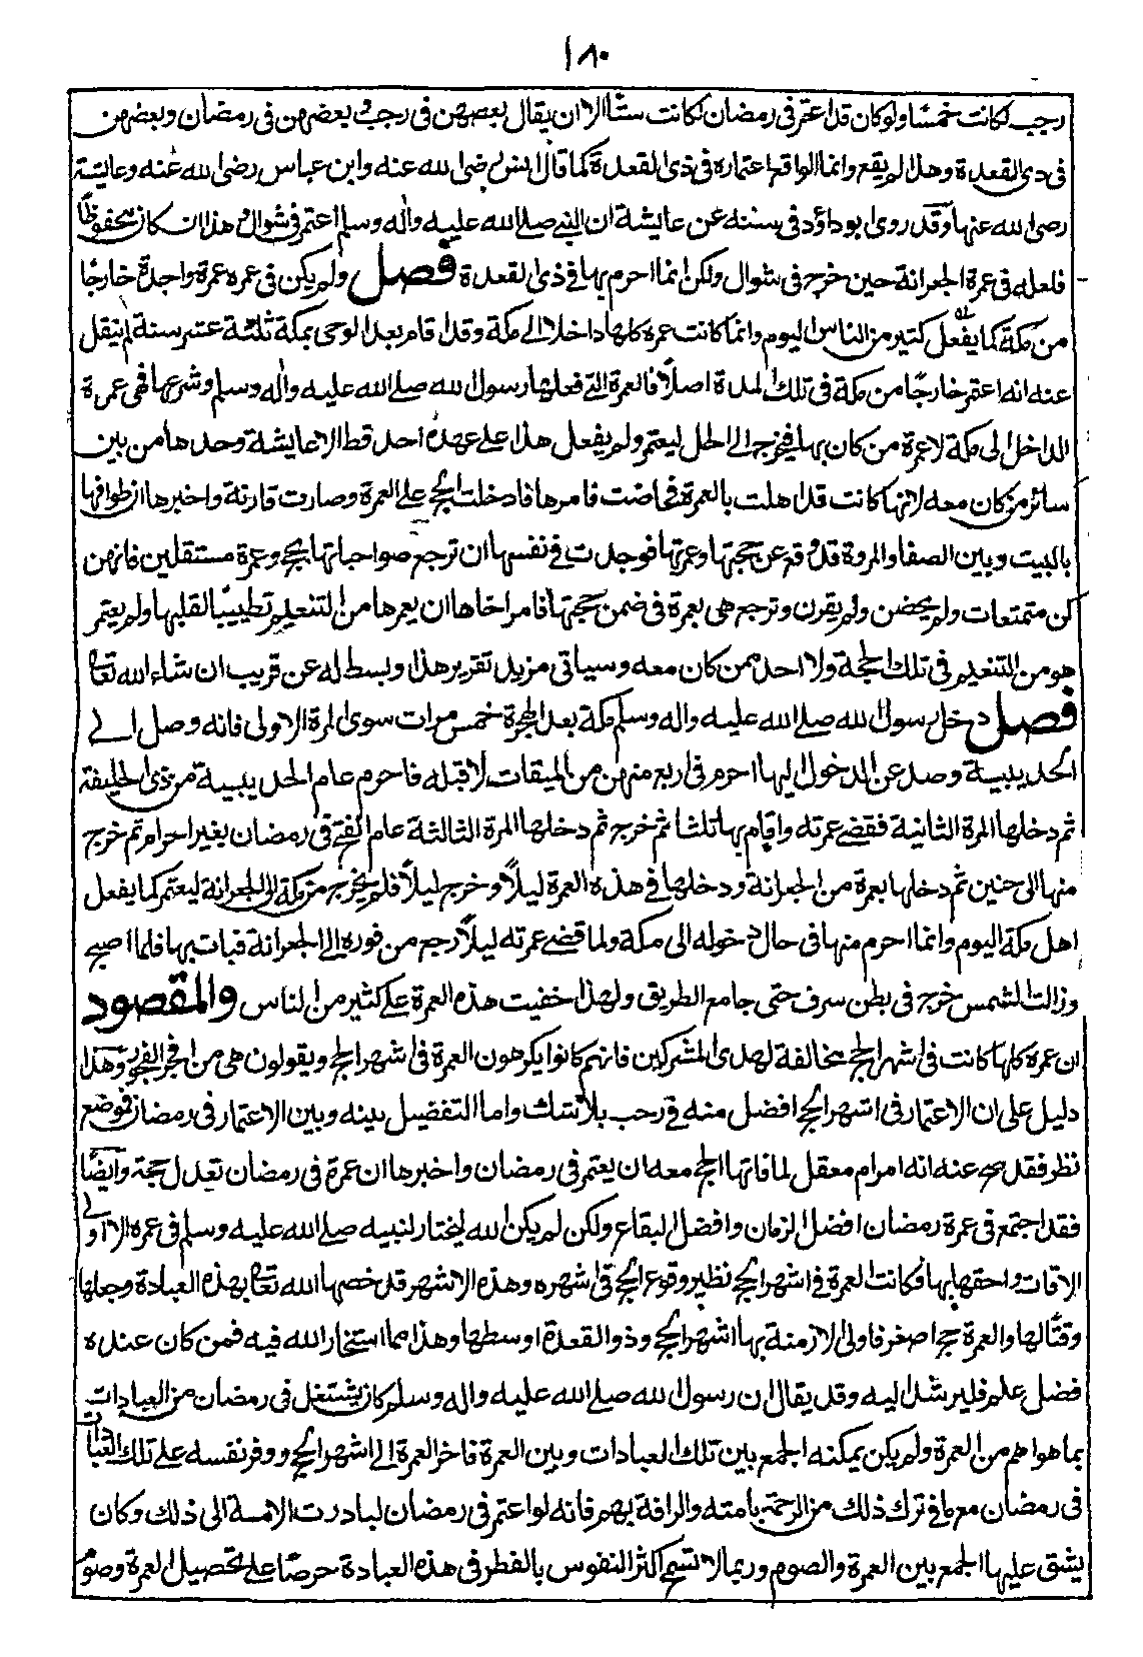 ١٨٠
رجب لكانت خمسًا ولو كان قد اعتمر فى رمضان لكانت ستًّا الا ان يقال بعضهن فى رجب بعضهن فى رمضان وبعضهن
فى ذى القعدة وهذا لم يقع وانما الواقع اعتماره فى ذى القعدة كما قال انس رضى الله عنه وابن عباس رضى الله عنه وعايشة
رضى الله عنها وقد روى ابوداؤد فى سننه عن عايشة ان النبى صلى الله عليه واله وسلم اعتمر فى شوال وهذا ان كان محفوظًا
فلعله فى عمرة الجعرانة حين خرج فى شوال ولكن انما احرم بها فى ذى القعدة فصل ولم يكن فى عمره عمرة واحدة خارجًا
من مكة كما يفعل كثير من الناس اليوم وانما كانت عمره كلها داخلا الى مكة وقد اقام بعد الوحى بمكة ثلثة عشر سنة لم ينقل
عنه انه اعتمر خارجًا من مكة فى تلك المدة اصلًا فالعمرة التى فعلها رسول الله صلى الله عليه واله وسلم وشرعها فهى عمرة
الداخل الى مكة لا عمرة من كان بها فيخرج الى الحل ليعتمر ولم يفعل هذا على عهده احد قط الا عايشة وحدها من بين
سائر من كان معه لانها كانت قد اهلت بالعمرة فحاضت فامرها فادخلت الحج على العمرة وصارت قارنة واخبرها ان طوافها
بالبيت وبين الصفا والمروة قد وقع عن حجتها وعمرتها فوجدت فى نفسها ان ترجع صواحباتها بحج وعمرة مستقلين فانهن
كن متمتعات ولم يحضن ولم يقرن وترجع هى بعمرة فى ضمن حجتها فامر اخاها ان يعمرها من التنعيم تطييبًا لقلبها ولم يعتمر
هو من التنعيم فى تلك الحجة ولا احد ممن كان معه وسياتى مزيد تقرير هذا وبسط له عن قريب ان شاء الله تعالى
فصل دخل رسول الله صلى الله عليه واله وسلم مكة بعد الهجرة خمس مرات سوى المرة الاولى فانه وصل الى
الحديبية وصد عن الدخول اليها احرم فى اربع منهن من الميقات لا قبله فاحرم عام الحديبية من ذى الحليفة
ثم دخلها المرة الثانية فقضى عمرته واقام بها ثلثا ثم خرج ثم دخلها المرة الثالثة عام الفتح فى رمضان بغير احرام ثم خرج
منها الى حنين ثم دخلها بعمرة من الجعرانة ودخلها فى هذه العمرة ليلًا وخرج ليلًا فلم يخرج من مكة الى الجعرانة ليعتمر كما يفعل
اهل مكة اليوم وانما احرم منها فى حال دخوله الى مكة ولما قضى عمرته ليلًا رجع من فوره الى الجعرانة فبات بها فلما اصبح
وزالت الشمس خرج فى بطن سرف حتى جامع الطريق ولهذا خفيت هذه العمرة على كثير من الناس والمقصود
ان عمره كلها كانت فى اشهر الحج مخالفة لهدى المشركين فانهم كانوا يكرهون العمرة فى اشهر الحج ويقولون هى من افجر الفجور وهذا
دليل على ان الاعتمار فى اشهر الحج افضل منه فى رجب بلا شك واما التفضيل بينه وبين الاعتمار فى رمضان فموضع
نظر فقد صح عنه انه امر ام معقل لما فاتها الحج معه ان يعتمر فى رمضان واخبرها ان عمرة فى رمضان تعدل حجة وايضًا
فقد اجتمع فى عمرة رمضان افضل الزمان وافضل البقاع ولكن لم يكن الله ليختار لنبيه صلى الله عليه وسلم فى عمره الا اولى
الاوقات واحقها بها فكانت العمرة فى اشهر الحج نظير وقوع الحج فى اشهره وهذه الاشهر قد خصها الله تعالى بهذه العبادة وجعلها
وقتًا لها والعمرة حج اصغر فاولى الازمنة بها اشهر الحج وذو القعدة اوسطها وهذا مما استخار الله فيه فمن كان عنده
فضل علم فليرشد اليه وقد يقال ان رسول الله صلى الله عليه واله وسلم كان يشتغل فى رمضان من العبادات
بما هو اهم من العمرة ولم يكن يمكنه الجمع بين تلك العبادات وبين العمرة فاخر العمرة الى اشهر الحج ووفر نفسه على تلك العبادات
فى رمضان مع ما فى ترك ذلك من الرحمة بامته والرافة بهم فانه لو اعتمر فى رمضان لبادرت الامة الى ذلك وكان
يشق عليها الجمع بين العمرة والصوم وربما لا تسمح اكثر النفوس بالفطر فى هذه العبادة حرصًا على تحصيل العمرة وصوم